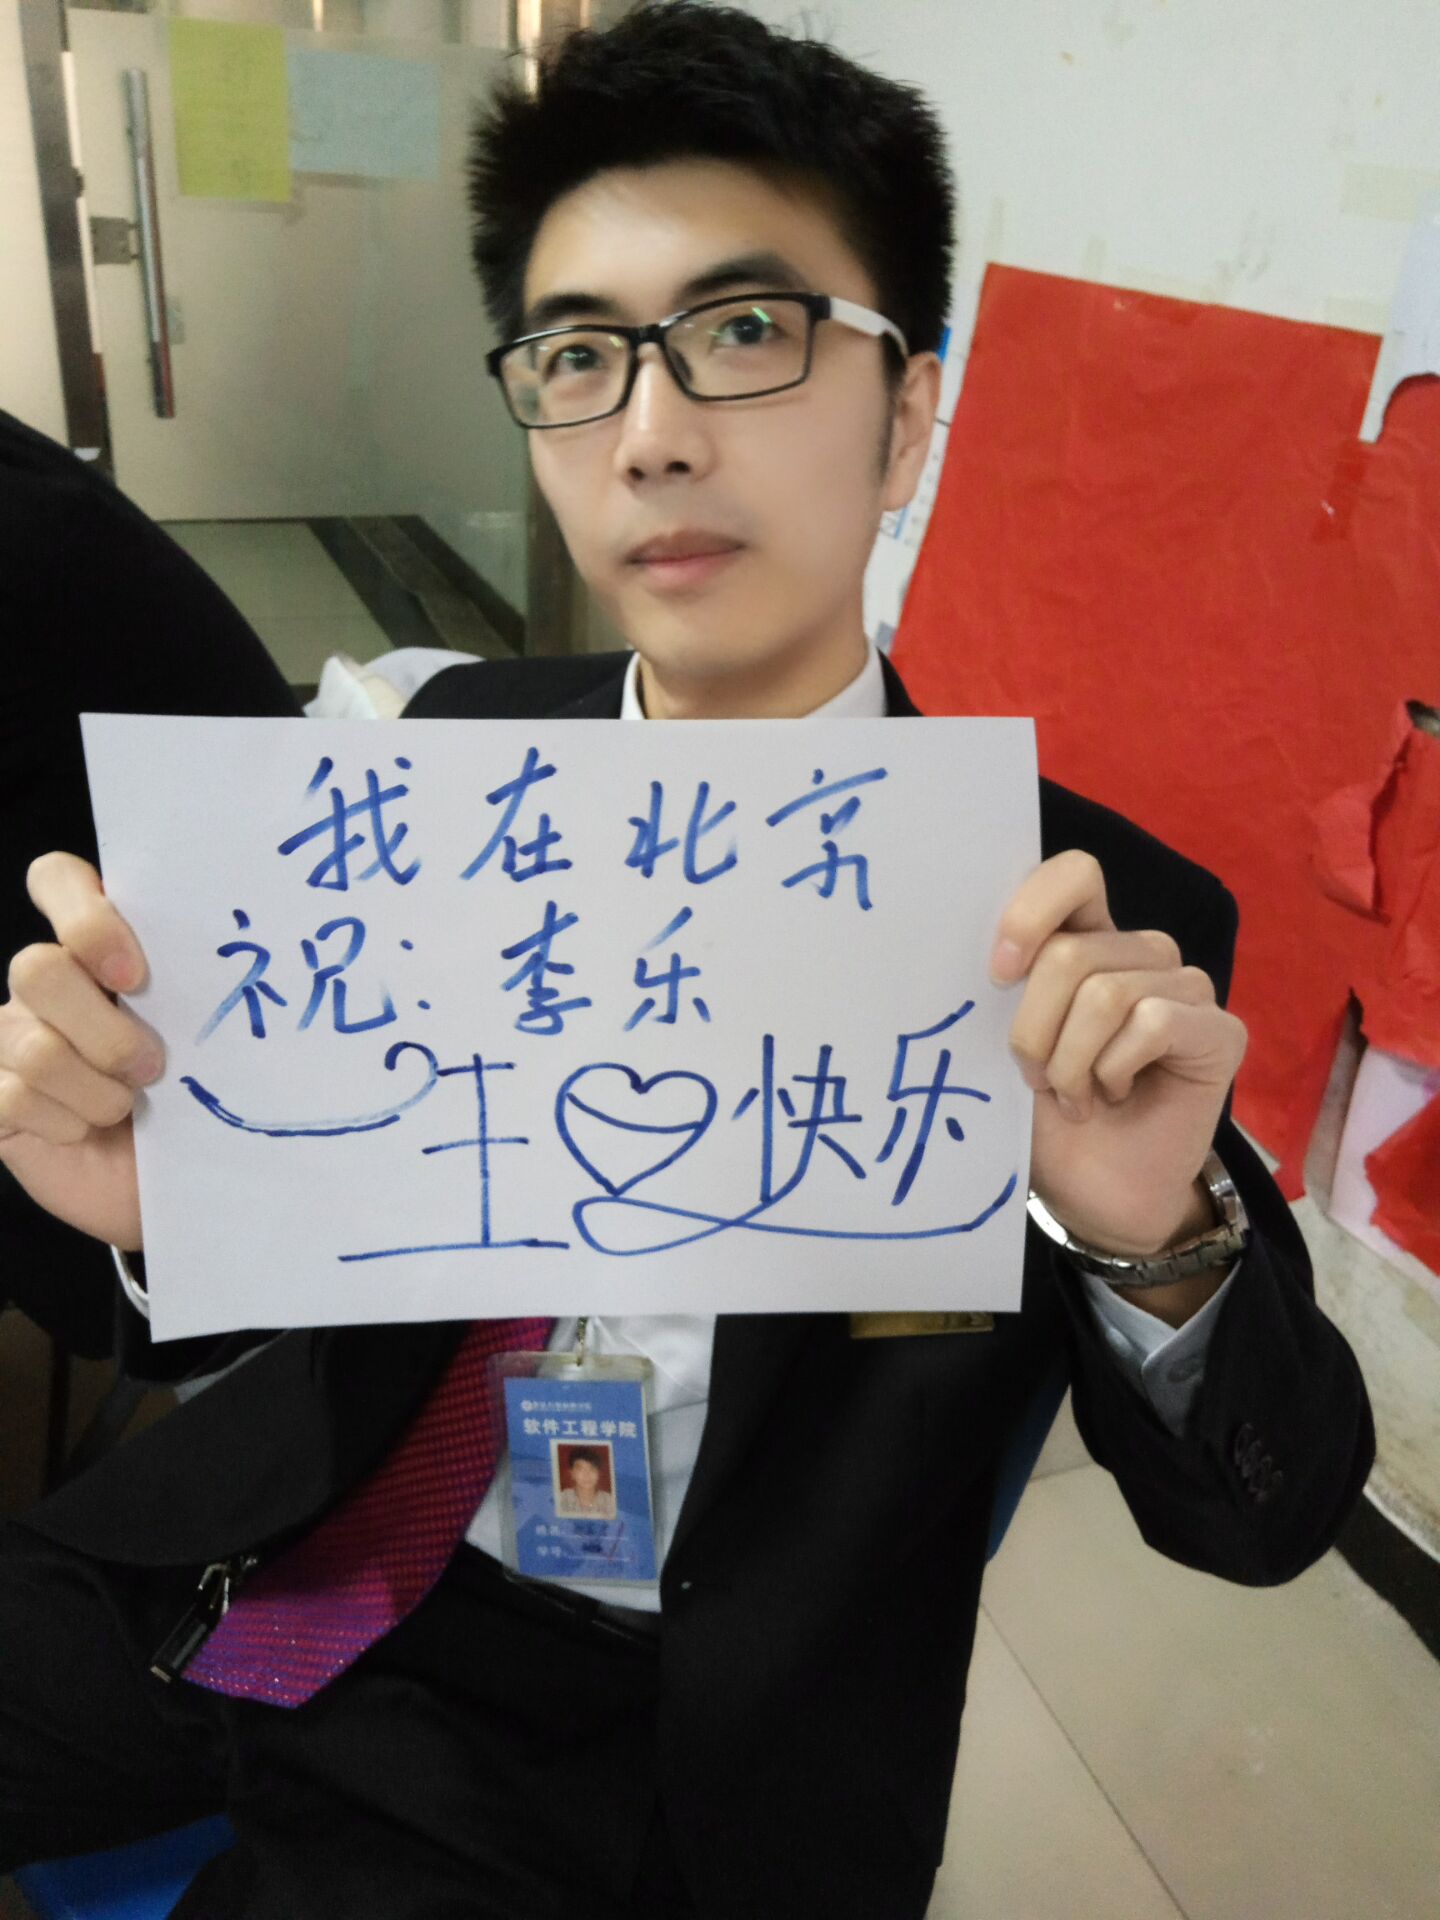 我在北京
祝：李乐
生快乐
软件工程学院
姓名：
学号：